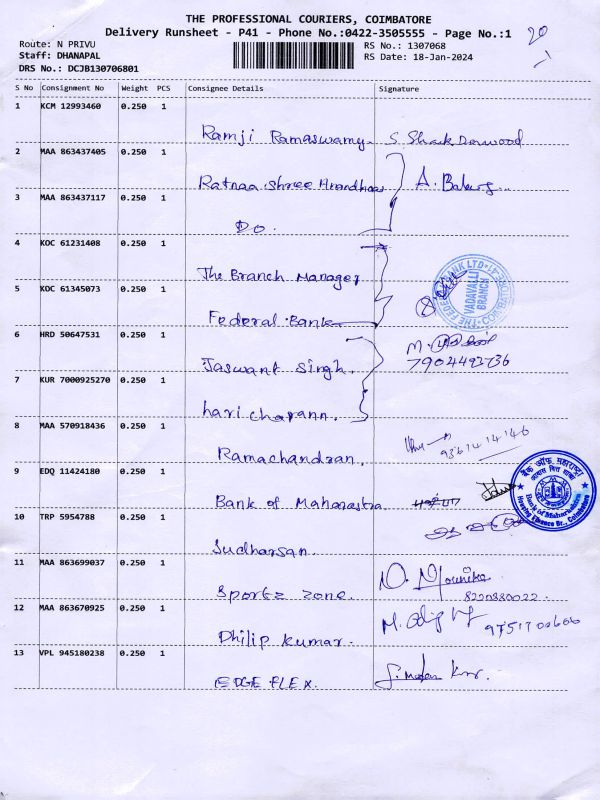 THE PROFESSIONAL COURIERS, COIMBATORE
Delivery Runsheet - P41 - Phone No.:0422-3505555 - Page No.:1
20
Route: N PRIVU
RS No.: 1307068
Staff: DHANAPAL
RS Date: 18-Jan-2024
DRS No.: DCJB130706801
S No Consignment No Weight PCS Consignee Details Signature
1 KCM 12993460 0.250 1
Ramji Ramaswamy
2 MAA 863437405 0.250 1
Ratnaa Shree
3 MAA 863437117 0.250 1
DO.
4 KOC 61231408 0.250 1
The Branch Manager
5 KOC 61345073 0.250 1
VADAVALLI BRANCH
Federal Bank
6 HRD 50647531 0.250 1
Jaswant Singh.
7 KUR 7000925270 0.250 1
hari charann.
8 MAA 570918436 0.250 1
Ramachandran.
9361414146
9 EDQ 11424180 0.250 1
Bank of Maharastra
बैंक ऑफ महाराष्ट्र
Bank of Maharashtra
Housing Finance Br., Coimbatore
10 TRP 5954788 0.250 1
Sudharsan.
11 MAA 863699037 0.250 1
Sportz zone.
N. Mounika
8220880022.
12 MAA 863670925 0.250 1
Philip Kumar.
13 VPL 945180238 0.250 1
EDGE FLEX.